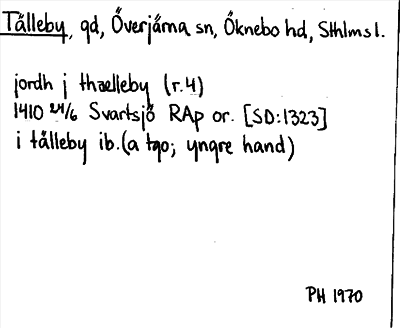 Tälleby, gd, Överjärna sn, Öknebo hd, Sthlms l.
jordh j thælleby (r. 4)
1410 24/6 Svartsjö RAp or. [SD:1323]
i tälleby ib. (a tgo; yngre hand)
PH 1970